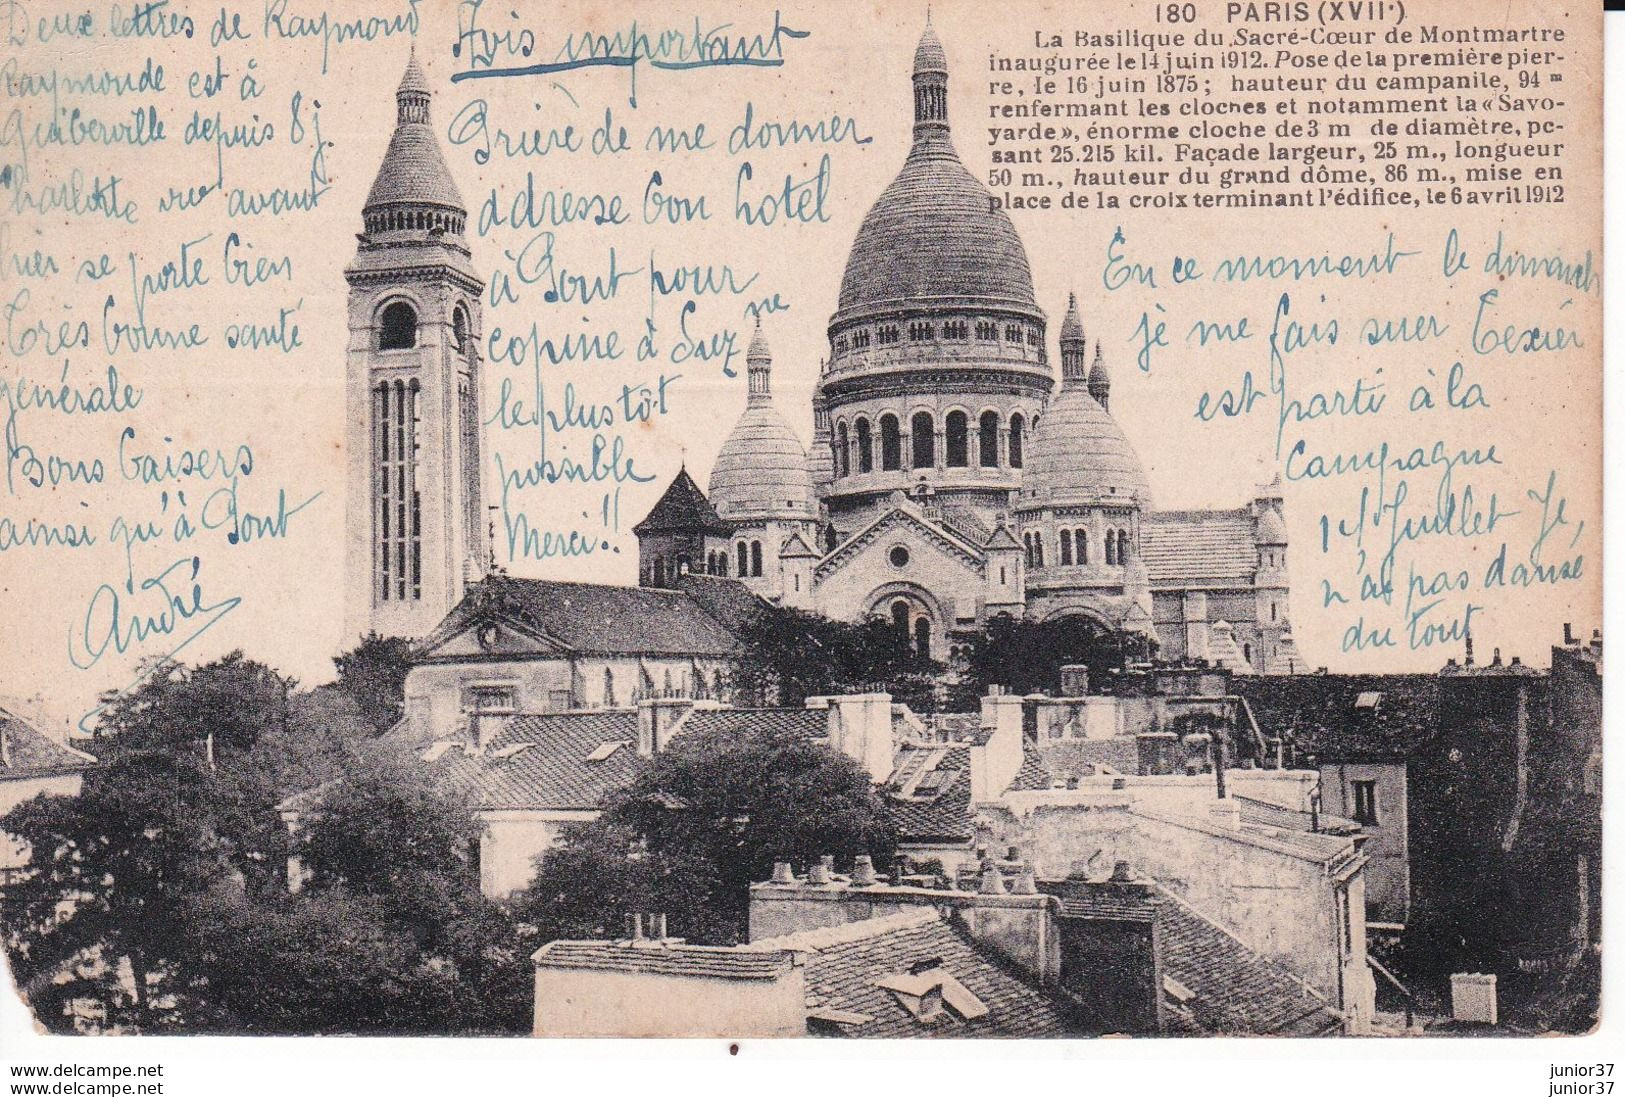 180 PARIS (XVIIe)
La Basilique du Sacré-Cœur de Montmartre
inaugurée le 14 juin 1912. Pose de la première pier-
re, le 16 juin 1875 ; hauteur du campanile, 94 m
renfermant les cloches et notamment la « Savo-
yarde », énorme cloche de 3 m de diamètre, pe-
sant 25.215 kil. Façade largeur, 25 m., longueur
50 m., hauteur du grand dôme, 86 m., mise en
place de la croix terminant l'édifice, le 6 avril 1912
Deux lettres de Raymond
Raymonde est à
Quiberville depuis 8 j.
Charlotte vu avant
hier se porte bien
Très bonne santé
générale
Bons baisers
ainsi qu'à Pont
André
Avis important
Prière de me donner
adresse bon hotel
à Pont pour
copine à Suz ne
le plus tôt
possible
Merci !!
En ce moment le dimanche
je me fais suer Texier
est parti à la
campagne
14 Juillet Je
n'ai pas dansé
du tout
junior37
delcampe.net
junior37
delcampe.net